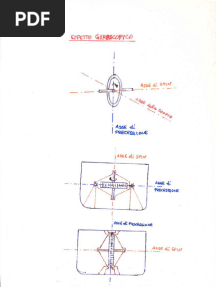 PDF
EFFETTO GIROSCOPICO
ASSE di SPIN
ASSE della COPPIA
ASSE di
PRECESSIONE
ASSE di SPIN
ASSE di
PRECESSIONE
ASSE di PRECESSIONE
ASSE di SPIN